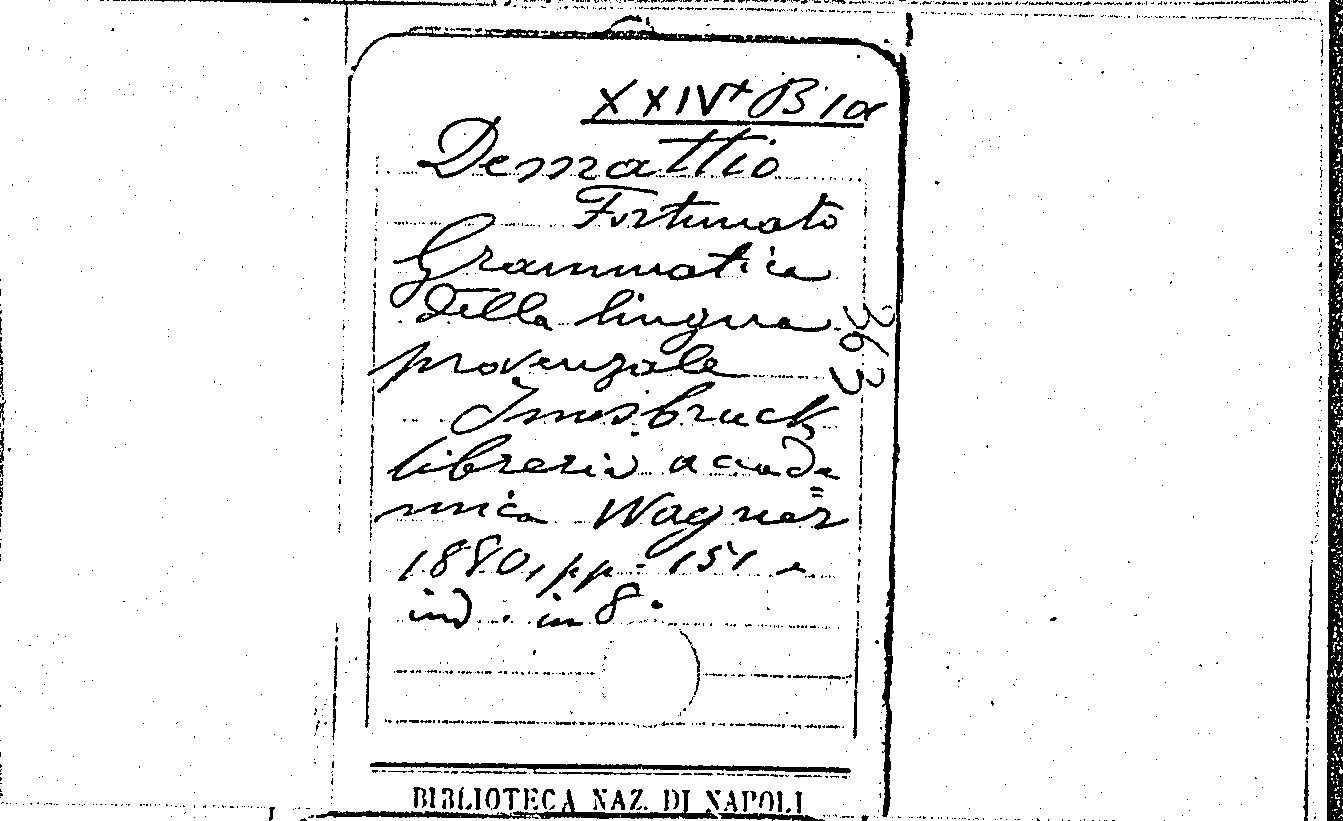 XXIV+ B 10
Demattio
Fortunato
Grammatica
della lingua
provenzale
363
Innsbruck
libreria accade
=
mica Wagner
1880, pp. 151 e
ind. in 8°
BIBLIOTECA NAZ. DI NAPOLI